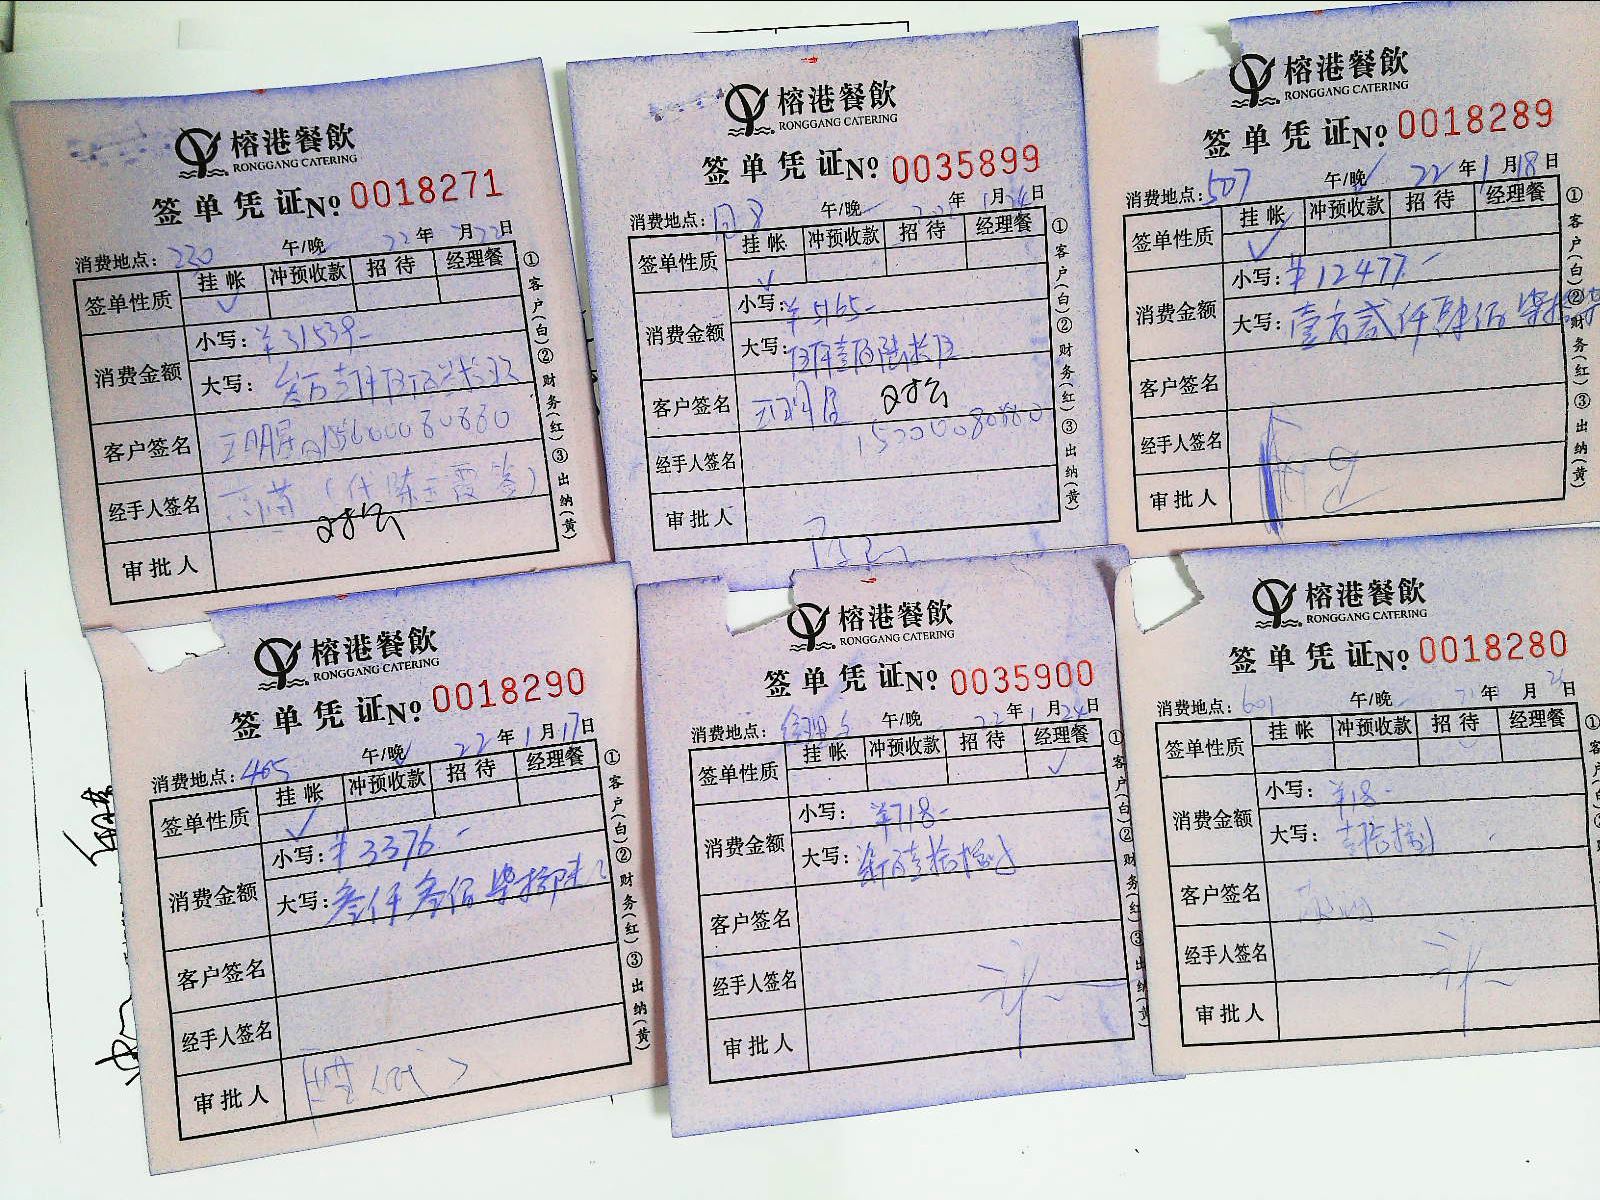 榕港餐飲
RONGGANG CATERING
签单凭证 No. 0018271
消费地点：220 午/晚 22年 月22日
签单性质 挂帐 冲预收款 招待 经理餐
✓
消费金额 小写：¥31539-
大写：
客户签名
经手人签名 （代陈玉霞签）
审批人
①客户(白)②财务(红)③出纳(黄)
榕港餐飲
RONGGANG CATERING
签单凭证 No. 0035899
消费地点： 午/晚 年1月24日
签单性质 挂帐 冲预收款 招待 经理餐
✓
消费金额 小写：¥5165-
大写：伍仟壹佰陆拾伍
客户签名
经手人签名
审批人
①客户(白)②财务(红)③出纳(黄)
榕港餐飲
RONGGANG CATERING
签单凭证 No. 0018289
消费地点：507 午/晚✓ 22年1月18日
签单性质 挂帐 冲预收款 招待 经理餐
✓
消费金额 小写：¥12477.-
大写：壹万贰仟肆佰柒拾柒
客户签名
经手人签名
审批人
①客户(白)②财务(红)③出纳(黄)
榕港餐飲
RONGGANG CATERING
签单凭证 No. 0018290
消费地点：405 午/晚✓ 22年1月17日
签单性质 挂帐 冲预收款 招待 经理餐
✓
消费金额 小写：¥3376-
大写：叁仟叁佰柒拾陆
客户签名
经手人签名
审批人
①客户(白)②财务(红)③出纳(黄)
榕港餐飲
RONGGANG CATERING
签单凭证 No. 0035900
消费地点： 午/晚 22年1月24日
签单性质 挂帐 冲预收款 招待 经理餐
✓
消费金额 小写：¥718-
大写：柒佰壹拾捌
客户签名
经手人签名
审批人
①客户(白)②财务(红)③出纳(黄)
榕港餐飲
RONGGANG CATERING
签单凭证 No. 0018280
消费地点：601 午/晚 年 月 日
签单性质 挂帐 冲预收款 招待 经理餐
✓
消费金额 小写：¥18-
大写：壹拾捌
客户签名
经手人签名
审批人